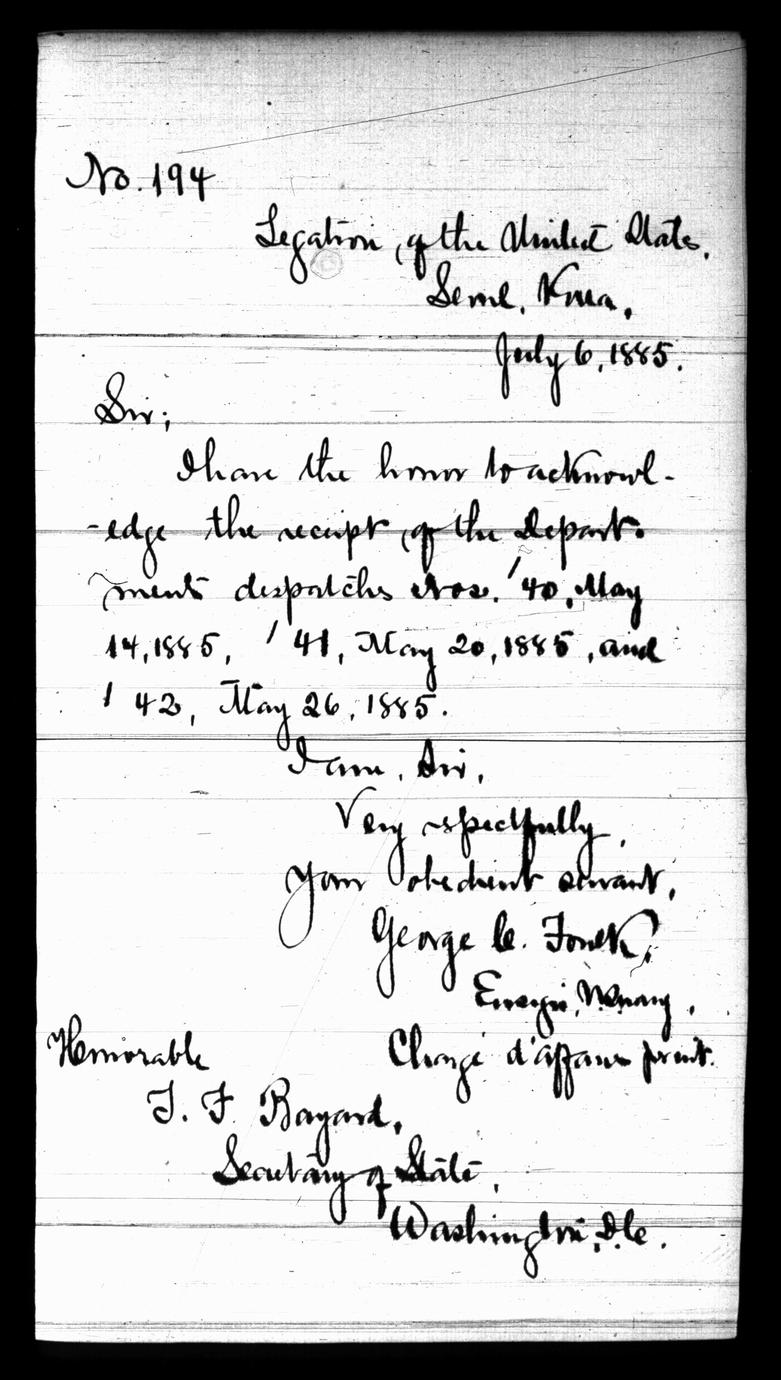 No. 194
Legation of the United States,
Seoul, Korea,
July 6, 1885.
Sir;
I have the honor to acknowl-
-edge the receipt of the Depart-
ments despatches Nos. '40, May
14, 1885, ' 41, May 20, 1885, and
' 42, May 26, 1885.
I am, Sir,
Very respectfully,
Your obedient servant,
George C. Foulk,
Ensign, U.S. Navy,
Honorable
Chargé d'affaires
T. F. Bayard,
Secretary of State,
Washington, D.C.